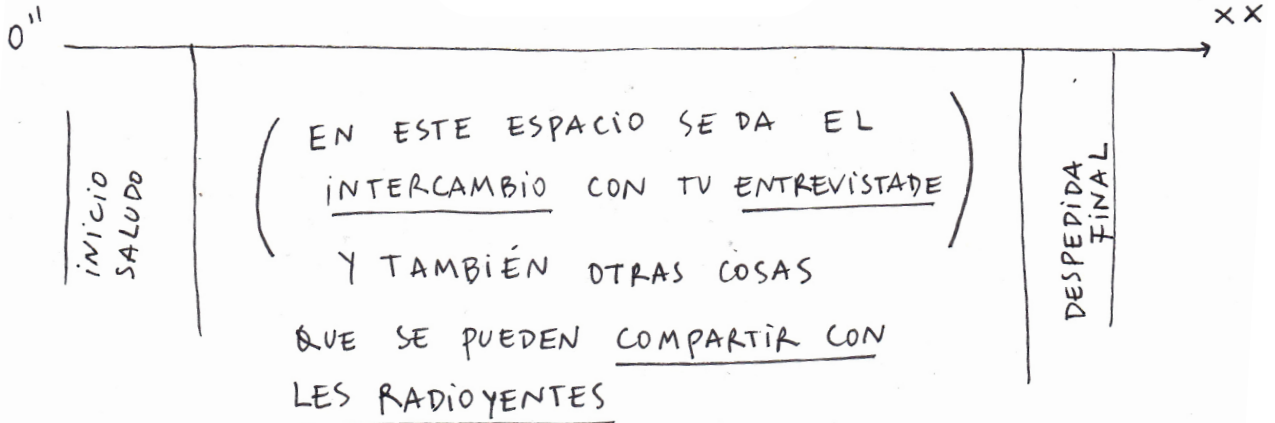 0"
XX
INICIO
SALUDO
(EN ESTE ESPACIO SE DA EL
INTERCAMBIO CON TU ENTREVISTADE)
Y TAMBIÉN OTRAS COSAS
QUE SE PUEDEN COMPARTIR CON
LES RADIOYENTES
DESPEDIDA
FINAL